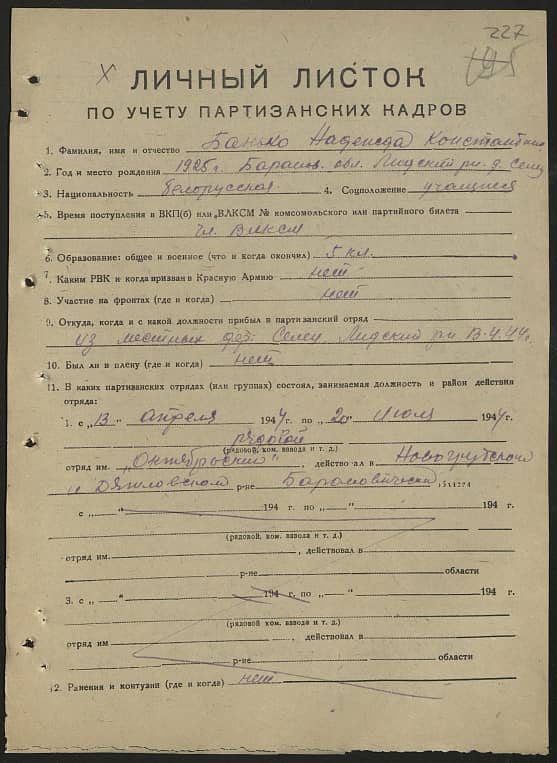 227
195
X ЛИЧНЫЙ ЛИСТОК
ПО УЧЕТУ ПАРТИЗАНСКИХ КАДРОВ
1. Фамилия, имя и отчество Банько Надежда Константин
2. Год и место рождения 1925 г. Баранов. обл. Лидский рн. д. Селец
3. Национальность белорусская 4. Соцположение учащийся
5. Время поступления в ВКП(б) или ВЛКСМ № комсомольского или партийного билета
чл. ВЛКСМ
6. Образование: общее и военное (что и когда окончил) 5 кл.
7. Каким РВК и когда призван в Красную Армию нет
8. Участие на фронтах (где и когда) нет
9. Откуда, когда и с какой должности прибыл в партизанский отряд
из местных дер. Селец, Лидский рн 13-4.44г.
10. Был ли в плену (где и когда) нет
11. В каких партизанских отрядах (или группах) состоял, занимаемая должность и район действия
отряда:
1. с „13“ апреля 1944 г. по „20“ июля 1944 г.
рядовой
(рядовой, ком. взвода и т. д.)
отряд им. „Октябрьский“, действовал в Новогрудском
и Дятловском р-не Барановической области
с „ “ 194 г. по „ “ 194 г.
(рядовой, ком. взвода и т. д.)
отряд им. , действовал в
р-не области
3. с „ “ 194 г. по „ “ 194 г.
(рядовой ком. взвода и т. д.)
отряд им , действовал в
р-не области
12. Ранения и контузии (где и когда) нет